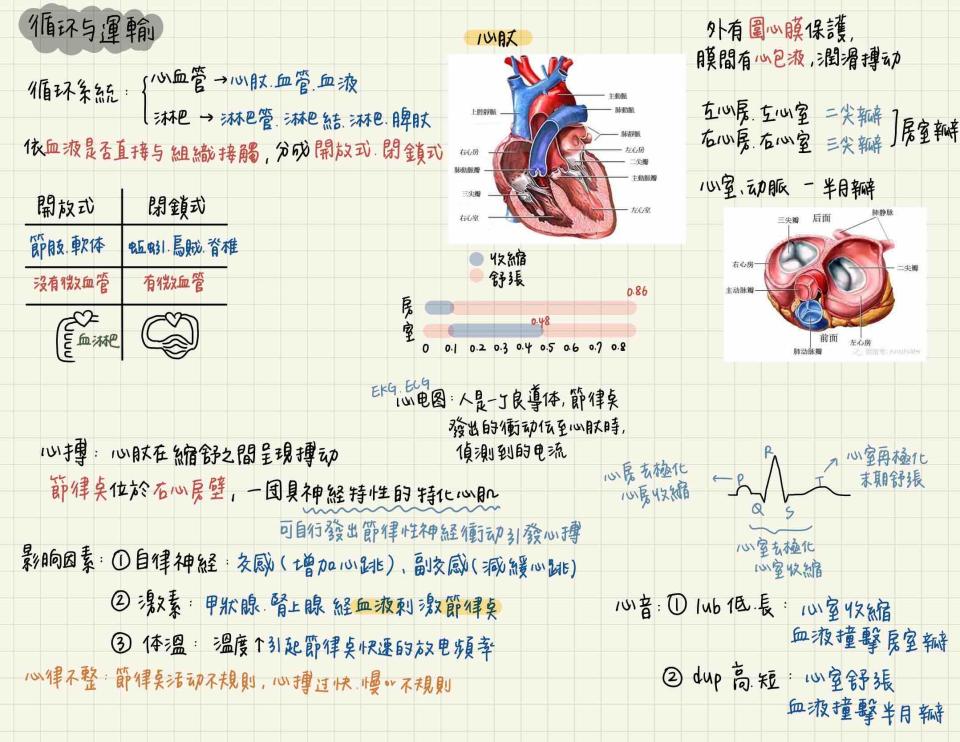 循环与運輸
循环系統：
心血管 → 心肢.血管.血液
淋巴 → 淋巴管.淋巴結.淋巴.脾肢
依血液是否直接与組織接觸，分成開放式.閉鎖式
開放式 閉鎖式
節肢.軟体 蚯蚓.烏賊.脊椎
沒有微血管 有微血管
血淋巴
心肢
主動脈
上腔靜脈
肺動脈
肺靜脈
右心房
左心房
肺動脈瓣
二尖瓣
主動脈瓣
三尖瓣
左心室
右心室
收縮
舒張
0.86
房
0.48
室
0 0.1 0.2 0.3 0.4 0.5 0.6 0.7 0.8
外有圍心膜保護，
膜間有心包液，潤滑搏动
左心房.左心室 二尖瓣
右心房.右心室 三尖瓣
房室瓣
心室、动脈 － 半月瓣
三尖瓣 后面 肺静脉
右心房
二尖瓣
主动脉瓣
前面
左心房
肺动脉瓣
EKG.ECG
心电图：人是一个良導体，節律桌
發出的衝动伝至心肢時，
偵測到的电流
心搏：心肢在縮舒之間呈現搏动
節律桌位於右心房壁，一団具神经特性的特化心肌
可自行發出節律性神经衝动引發心搏
心房去極化
心房收縮
P
Q
R
S
T
心室再極化
末期舒張
心室去極化
心室收縮
影响因素：① 自律神经：交感(增加心跳)、副交感(減緩心跳)
② 激素：甲狀腺.腎上腺 経血液刺激節律桌
③ 体溫：溫度↑引起節律桌快速的放电頻率
心律不整：節律桌活动不規則，心搏过快.慢or不規則
心音：① lub 低.長：心室收縮
血液撞擊房室瓣
② dup 高.短：心室舒張
血液撞擊半月瓣